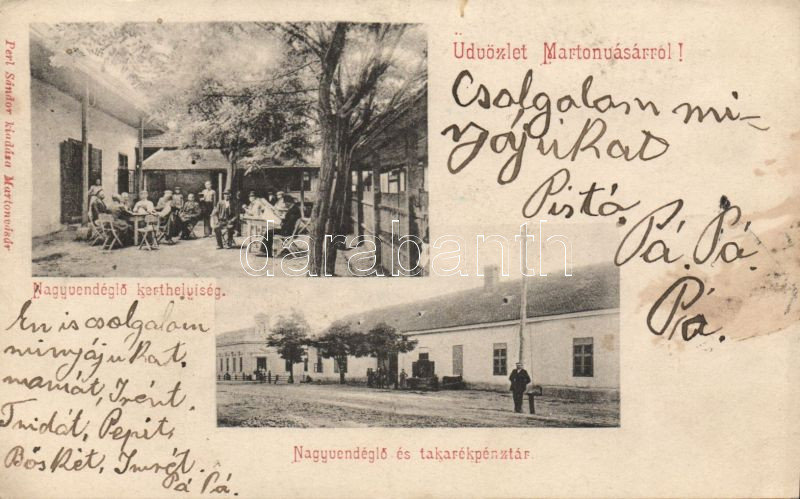 Üdvözlet Martonvásárról!
Csolgalam mi-
nyájukat
Pistá.
Pá. Pá.
Pá.
Perl Sándor kiadása Martonvásár
Nagyvendéglő kerthelyiség.
En is csolgalam
minyájukat,
mamát, Irént.
Tridát, Pepit,
Böskét, Imrét.
Pá Pá.
Nagyvendéglő és takarékpénztár.
darabanth.com